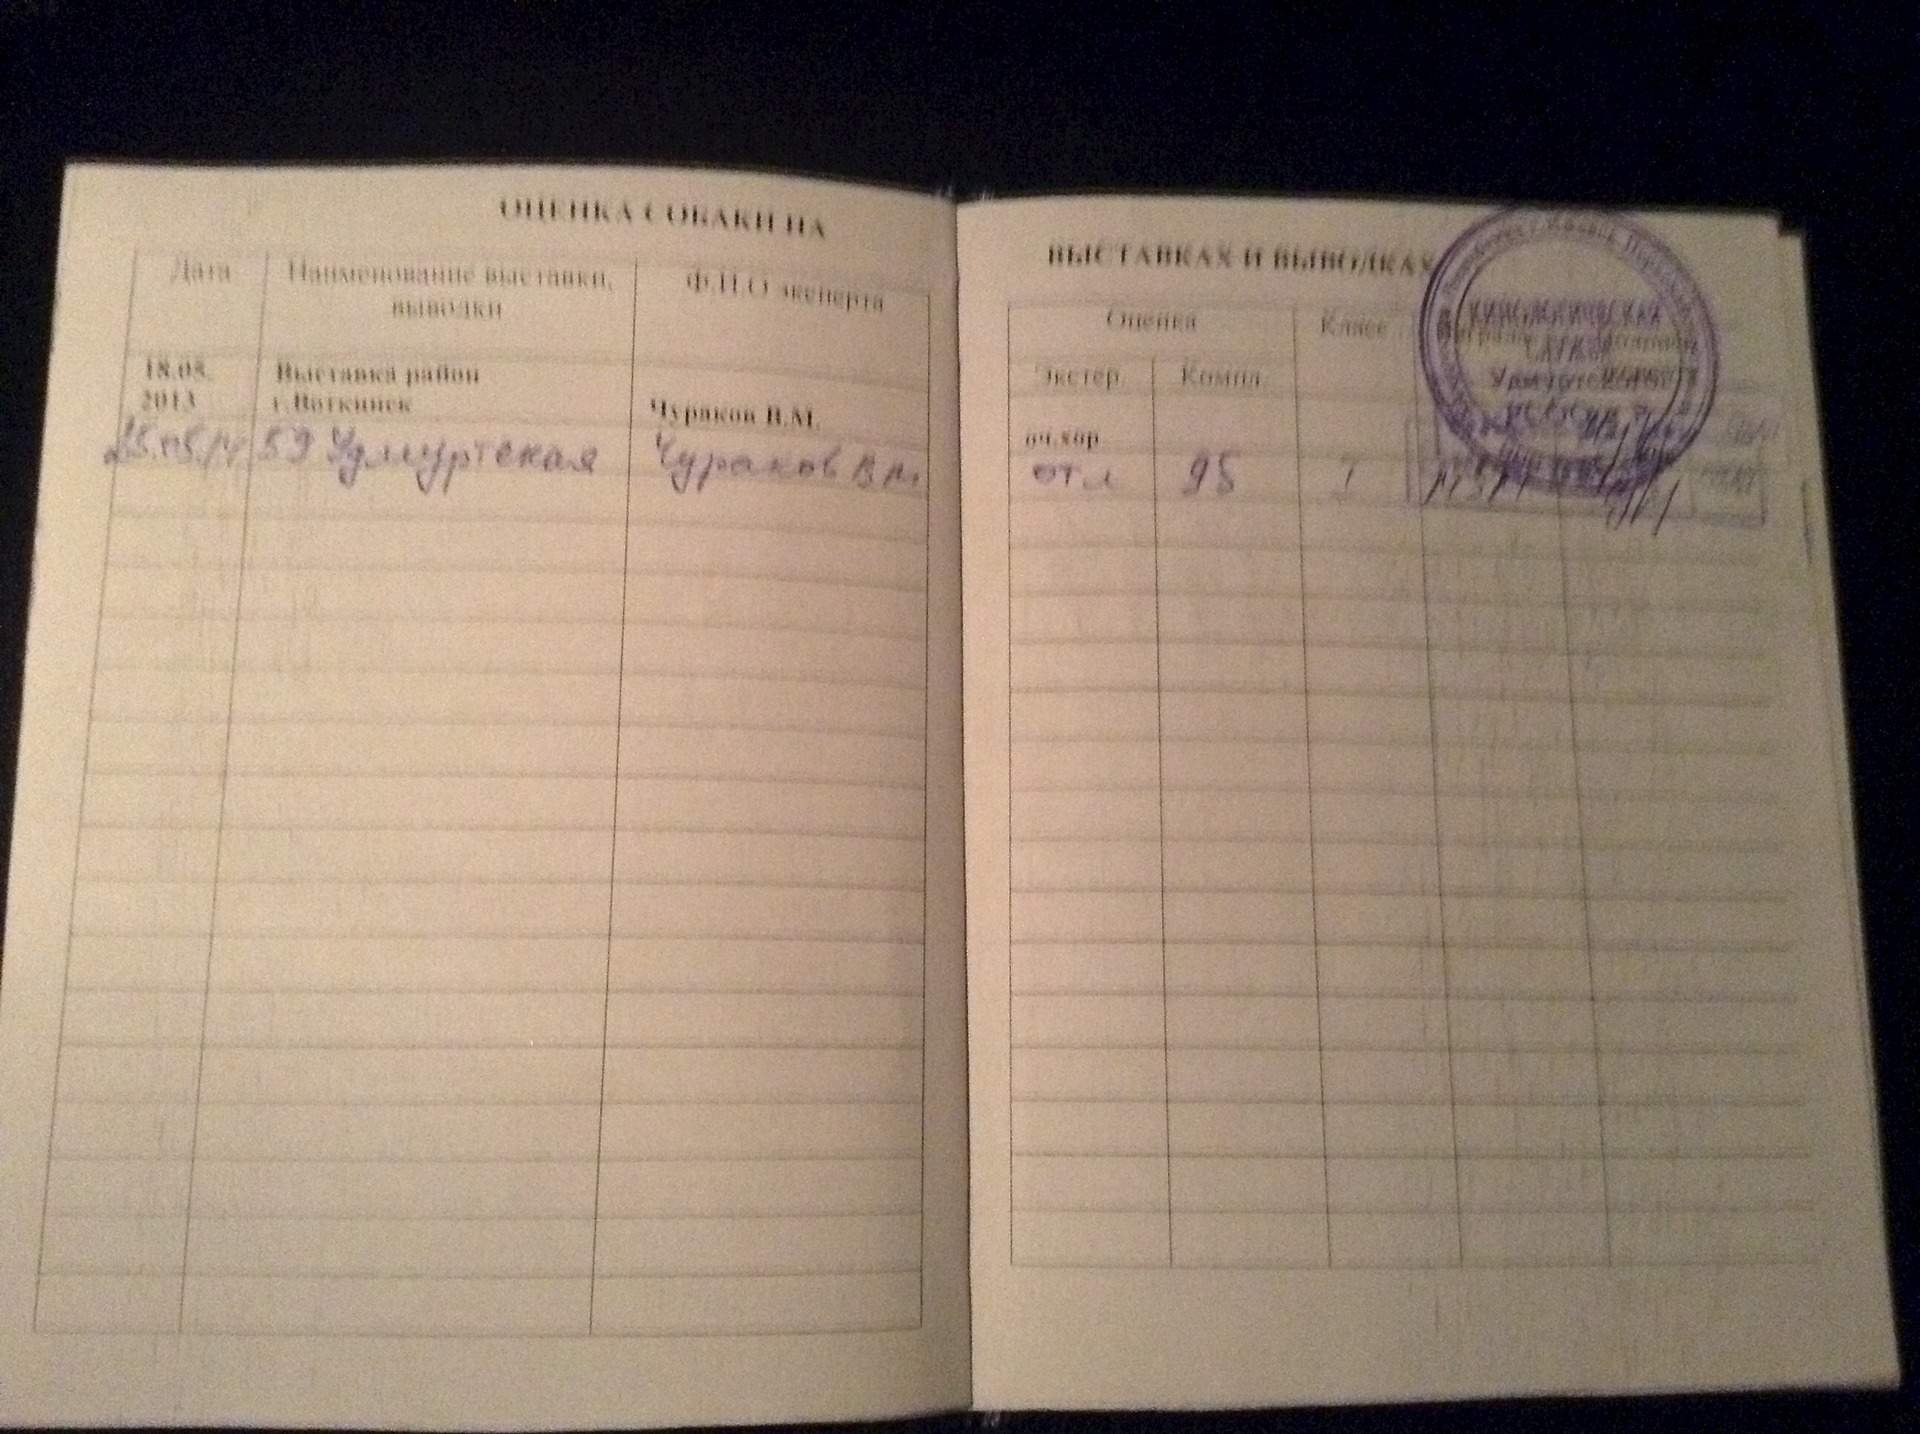 ОЦЕНКА СОБАКИ НА
Дата
Наименование выставки,
выводки
Ф.И.О эксперта
18.05.
2013
Выставка район
г.Воткинск
Чураков В.М.
25.05.14 59 Удмуртская Чураков В.М.
ВЫСТАВКАХ И ВЫВОДКАХ
Оценка
Класс
Экстер.
Компл.
КИНОЛОГИЧЕСКАЯ
СЛУЖБА
Удмуртского
оч.хор
отл 95 I